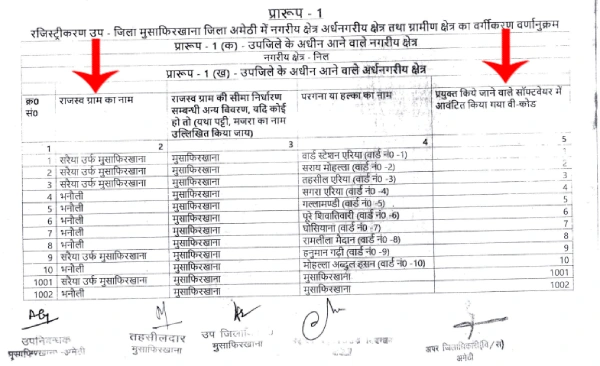 प्रारूप - 1
रजिस्ट्रीकरण उप - जिला मुसाफिरखाना जिला अमेठी में नगरीय क्षेत्र अर्धनगरीय क्षेत्र तथा ग्रामीण क्षेत्र का वर्गीकरण वर्णानुक्रम
प्रारूप - 1 (क) - उपजिले के अधीन आने वाले नगरीय क्षेत्र
नगरीय क्षेत्र - निल
प्रारूप - 1 (ख) - उपजिले के अधीन आने वाले अर्धनगरीय क्षेत्र
क्र0 सं0 राजस्व ग्राम का नाम राजस्व ग्राम की सीमा निर्धारण सम्बन्धी अन्य विवरण, यदि कोई हो तो (यथा पट्टी, मजरा का नाम उल्लिखित किया जाय) परगना या हल्का का नाम प्रयुक्त किये जाने वाले सॉफ्टवेयर में आवंटित किया गया वी-कोड
1 2 3 4 5
1 सरेया उर्फ मुसाफिरखाना मुसाफिरखाना वार्ड स्टेशन एरिया (वार्ड नं0 -1) 1
2 सरेया उर्फ मुसाफिरखाना मुसाफिरखाना सराय मोहल्ला (वार्ड नं0 -2) 2
3 सरेया उर्फ मुसाफिरखाना मुसाफिरखाना तहसील एरिया (वार्ड नं0 -3) 3
4 भनौली मुसाफिरखाना सगरा एरिया (वार्ड नं0 -4) 4
5 भनौली मुसाफिरखाना गल्लामण्डी (वार्ड नं0 -5) 5
6 भनौली मुसाफिरखाना पूरे शिवातिवारी (वार्ड नं0 -6) 6
7 भनौली मुसाफिरखाना घोसियाना (वार्ड नं0 -7) 7
8 भनौली मुसाफिरखाना रामलीला मैदान (वार्ड नं0 -8) 8
9 सरेया उर्फ मुसाफिरखाना मुसाफिरखाना हनुमान गढ़ी (वार्ड नं0 -9) 9
10 भनौली मुसाफिरखाना मोहल्ला अब्दुल हसन (वार्ड नं0 -10) 10
1001 सरेया उर्फ मुसाफिरखाना मुसाफिरखाना मुसाफिरखाना 1001
1002 भनौली मुसाफिरखाना मुसाफिरखाना 1002
उपनिबन्धक तहसीलदार उप अपर जिलाधिकारी(वि/रा)
मुसाफिरखाना -अमेठी मुसाफिरखाना मुसाफिरखाना अमेठी